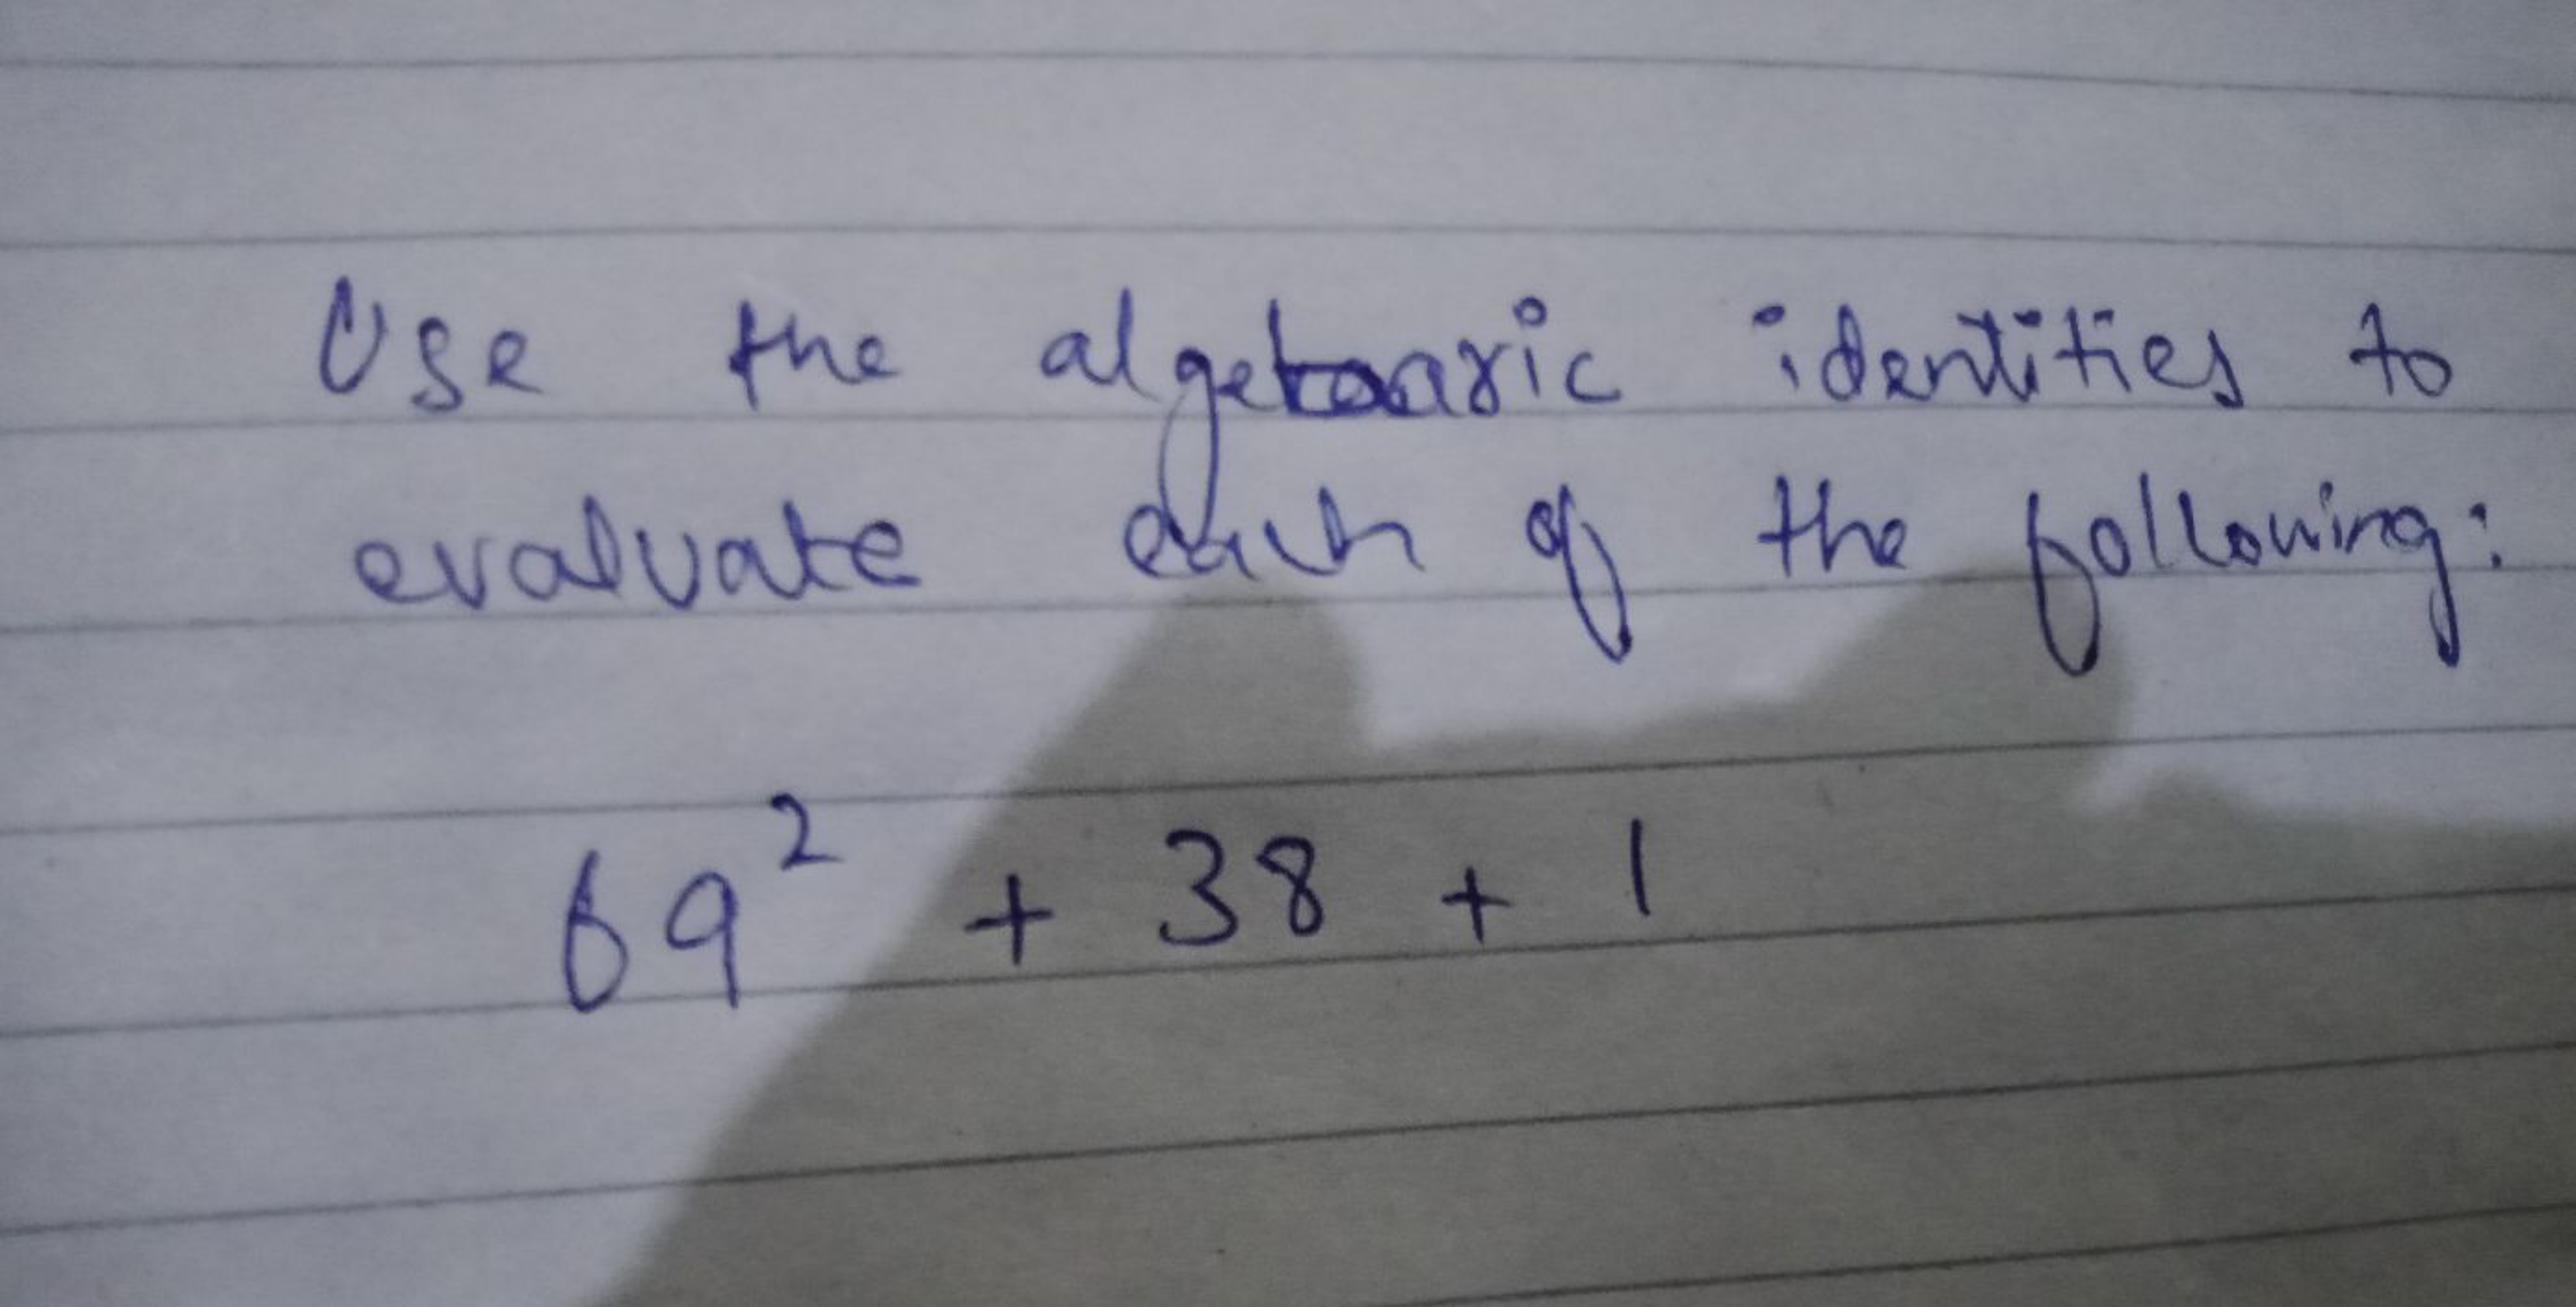 Use the algebaric identities to
evaluate each of the following:
69² + 38 + 1